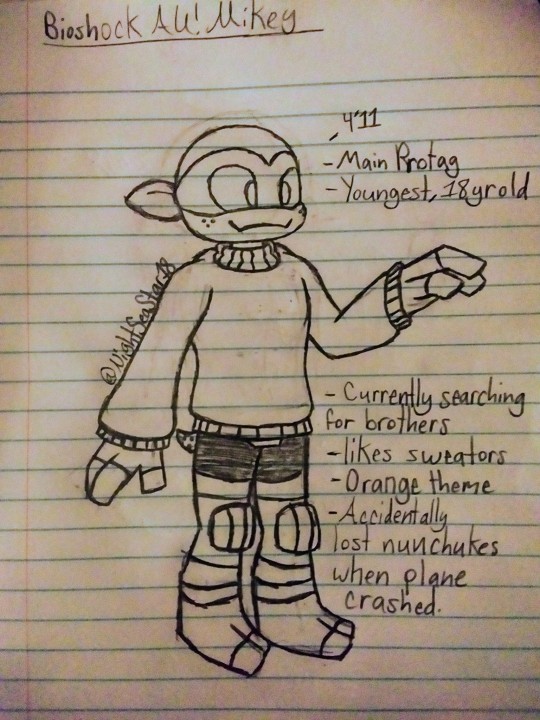 Bioshock AU! Mikey
4'11
- Main Protag
- Youngest, 18yr old
@NightSeaStar18
- Currently searching
for brothers
- likes sweators
- Orange theme
- Accidentally
lost nunchukes
when plane
crashed.